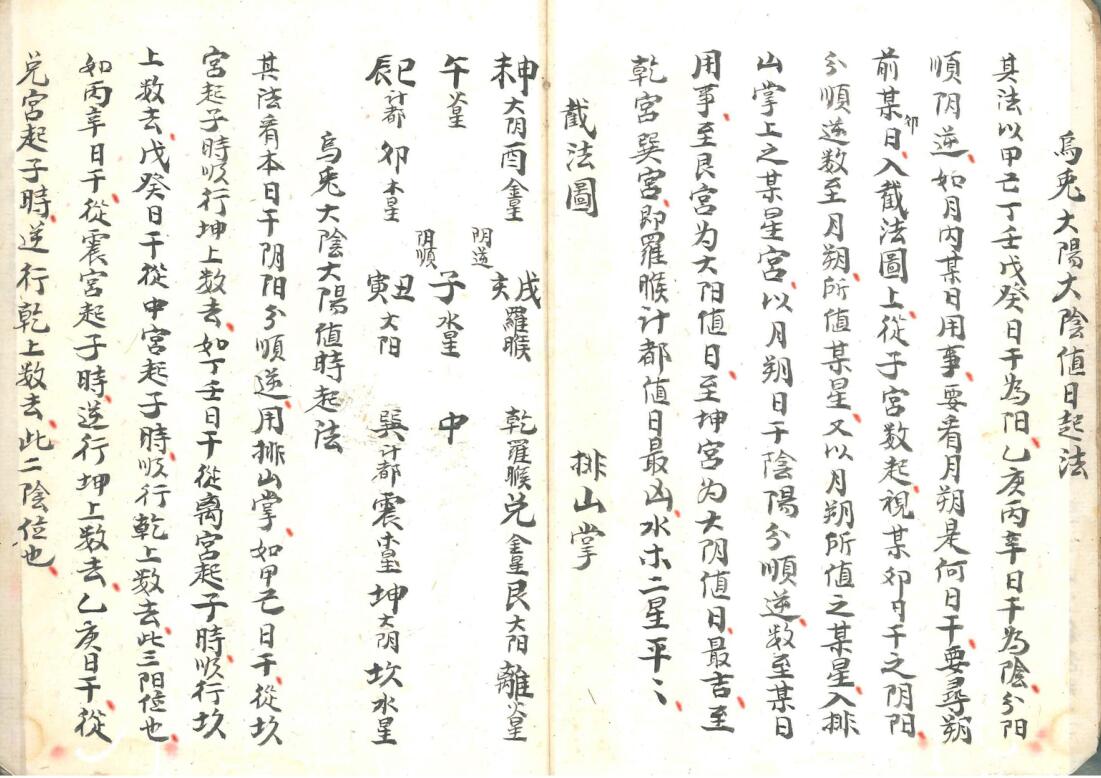 烏兎大陽大陰值日起法
其法以甲己丁壬戊癸日干為阳乙庚丙辛日干為陰分阳
順阴逆如月内某日用事要看月朔是何日干要尋朔
前某卯日入截法圖上從子宮数起視某卯日干之阴阳
分順逆数至月朔所值某星又以月朔所值之某星入排
山掌上之某星宮以月朔日干陰陽分順逆数至某日
用事至艮宮为大阳值日至坤宮为大阴值日最吉至
乾宮巽宮即羅睺计都值日最凶水木二星平々
截法圖 排山掌
未申大阴 酉金星 戌亥羅睺 乾羅睺 兑金星 艮大阳 離火星
午火星 阴逆 阴順 子水星 中
辰巳计都 卯木星 寅丑大阳 巽计都 震木星 坤大阴 坎水星
烏兎大陰大陽值時起法
其法看本日干阴阳分順逆用排山掌如甲己日干從坎
宮起子時順行坤上数去如丁壬日干從离宮起子時順行坎
上数去戊癸日干從中宮起子時順行乾上数去此三阳位也
如丙辛日干從震宮起子時逆行坤上数去乙庚日干從
兑宮起子時逆行乾上数去此二陰位也